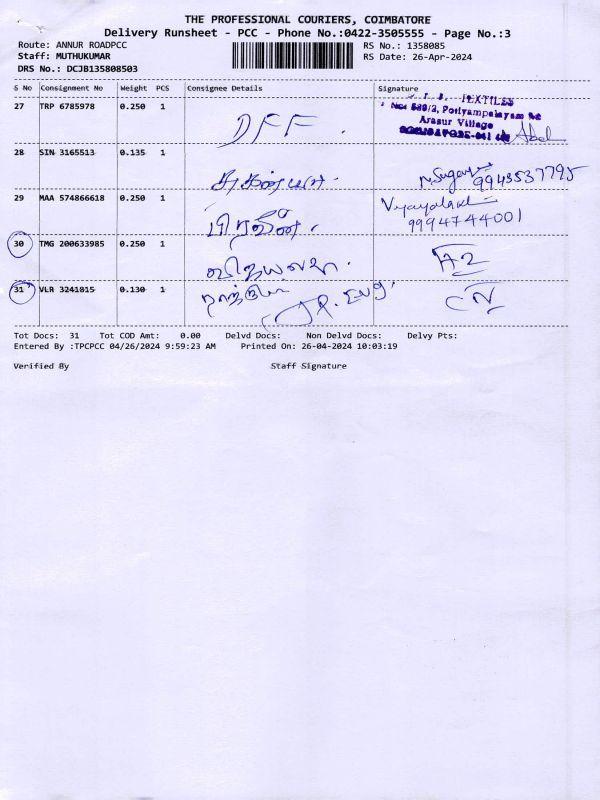 THE PROFESSIONAL COURIERS, COIMBATORE
Delivery Runsheet - PCC - Phone No.:0422-3505555 - Page No.:3
Route: ANNUR ROADPCC RS No.: 1358085
Staff: MUTHUKUMAR RS Date: 26-Apr-2024
DRS No.: DCJB135808503
S No Consignment No Weight PCS Consignee Details Signature
27 TRP 6785978 0.250 1 DFF. TEXTILES
Arasur Village
Abel
28 SIN 3165513 0.135 1 சுகன்யா. 9943537795
29 MAA 574866618 0.250 1 பிரவீன். Vijayalakshmi
9994744001
30 TMG 200633985 0.250 1
31 VLR 3241815 0.130 1
Tot Docs: 31 Tot COD Amt: 0.00 Delvd Docs: Non Delvd Docs: Delvy Pts:
Entered By :TPCPCC 04/26/2024 9:59:23 AM Printed On: 26-04-2024 10:03:19
Verified By Staff Signature